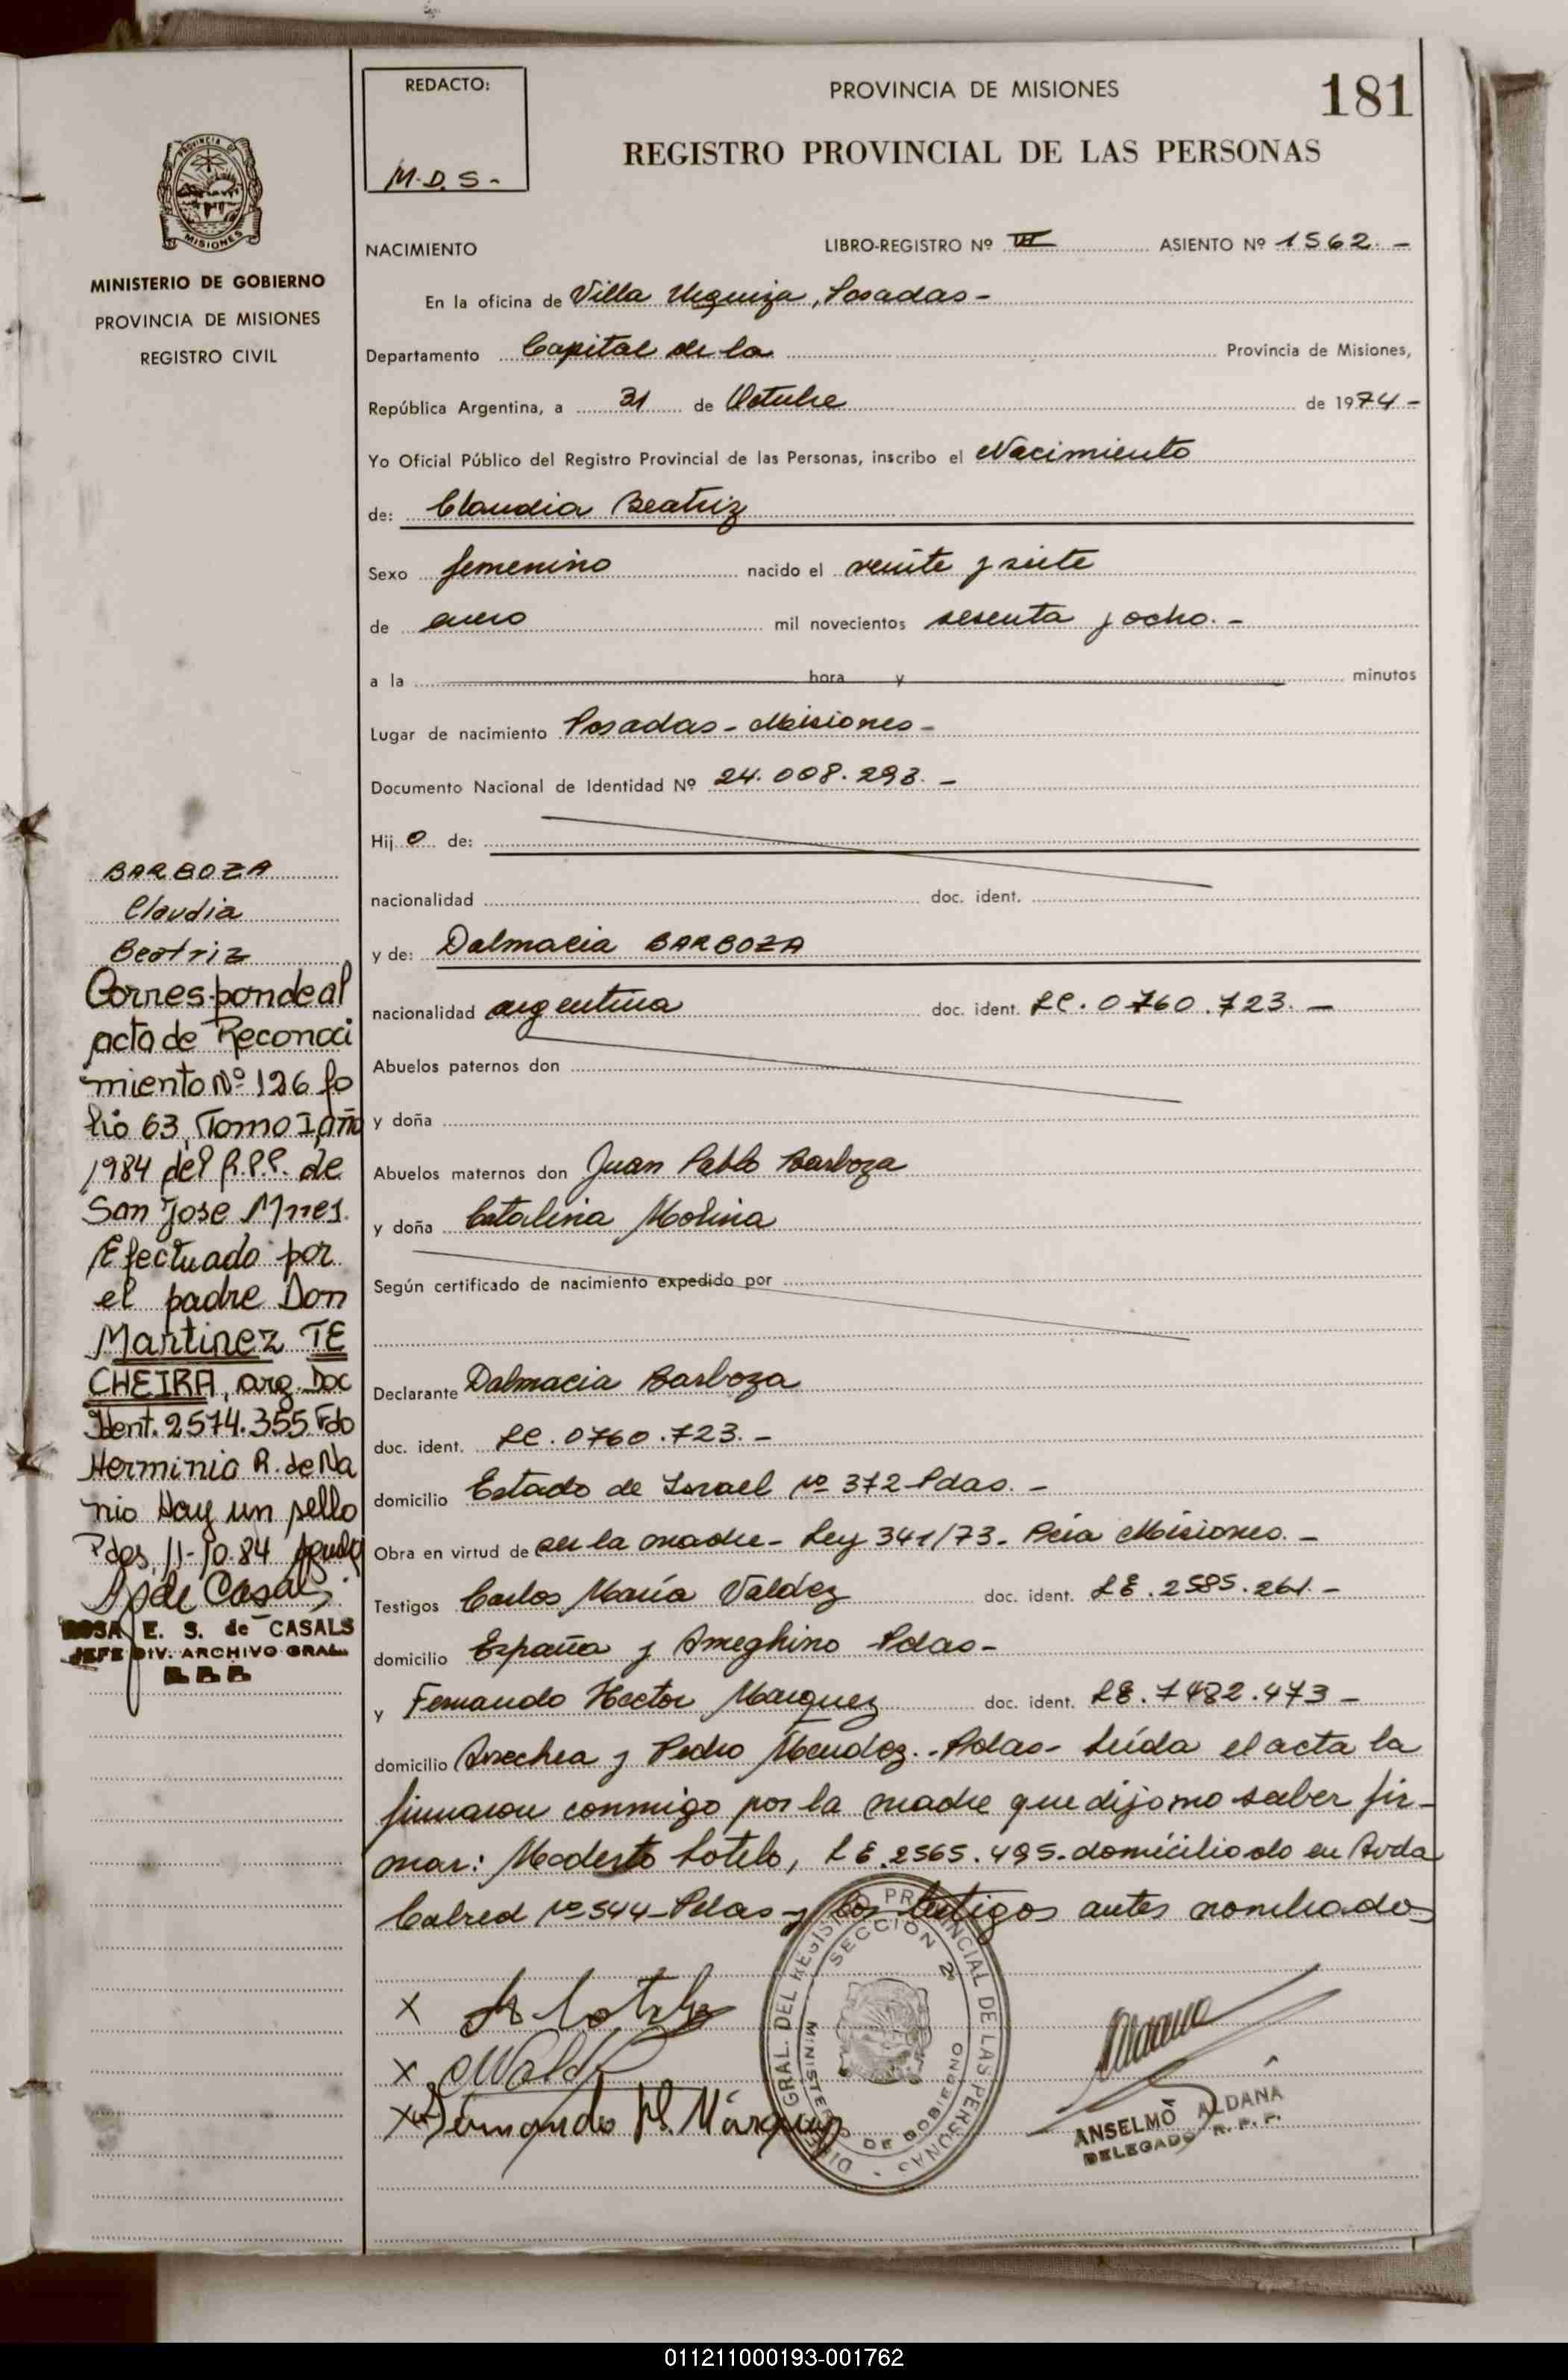 REDACTO:
M.D.S-
PROVINCIA DE MISIONES
181
REGISTRO PROVINCIAL DE LAS PERSONAS
PROVINCIA D
MISIONES
MINISTERIO DE GOBIERNO
PROVINCIA DE MISIONES
REGISTRO CIVIL
NACIMIENTO LIBRO-REGISTRO Nº III ASIENTO Nº 1562.-
En la oficina de Villa Urquiza, Posadas-
Departamento Capital de la Provincia de Misiones,
República Argentina, a 31 de Octubre de 1974-
Yo Oficial Público del Registro Provincial de las Personas, inscribo el Nacimiento
de: Claudia Beatriz
Sexo femenino nacido el veinte y siete
de enero mil novecientos sesenta y ocho.-
a la hora y minutos
Lugar de nacimiento Posadas-Misiones-
Documento Nacional de Identidad Nº 24.008.293.-
Hij o de:
nacionalidad doc. ident.
y de: Dalmacia BARBOZA
nacionalidad argentina doc. ident. LC. 0760.723.-
Abuelos paternos don
y doña
Abuelos maternos don Juan Pablo Barboza
y doña Catalina Molina
Según certificado de nacimiento expedido por
Declarante Dalmacia Barboza
doc. ident. LC. 0760.723.-
domicilio Estado de Israel Nº 372-Pdas.-
Obra en virtud de ser la madre- Ley 341/73- Pcia Misiones.-
Testigos Carlos María Valdez doc. ident. LE. 2585.261.-
domicilio España y Ameghino Pdas-
y Fernando Hector Marquez doc. ident. LE. 7482.473-
domicilio Arrechea y Pedro Mendez.-Pdas- Leída el acta la
firmaron conmigo por la madre que dijo no saber fir-
mar: Modesto Sotelo, LE. 2565.495. domiciliado en Avda
Cabred Nº 544-Pdas-y los testigos antes nombrados
BARBOZA
Claudia
Beatriz
Corresponde al
acta de Reconoci
miento Nº 126 fo
lio 63, Tomo I, año
1984 del R.P.P. de
San Jose Mnes.
Efectuado por
el padre Don
Martinez TE
CHEIRA, arg. Doc
Ident. 2574.355 Fdo
Herminia R. de Na
nio Hay un sello
Pdas 11-10-84
de Casals
ROSA E. S. de CASALS
JEFE DIV. ARCHIVO GRAL.
X
X
X Fernando H. Márquez
DIREC GRAL. DEL REGISTRO PROVINCIAL DE LAS PERSONAS
SECCION 2
MINISTERIO DE GOBIERNO
ANSELMO ALDANA
DELEGADO R. P. P.
011211000193-001762